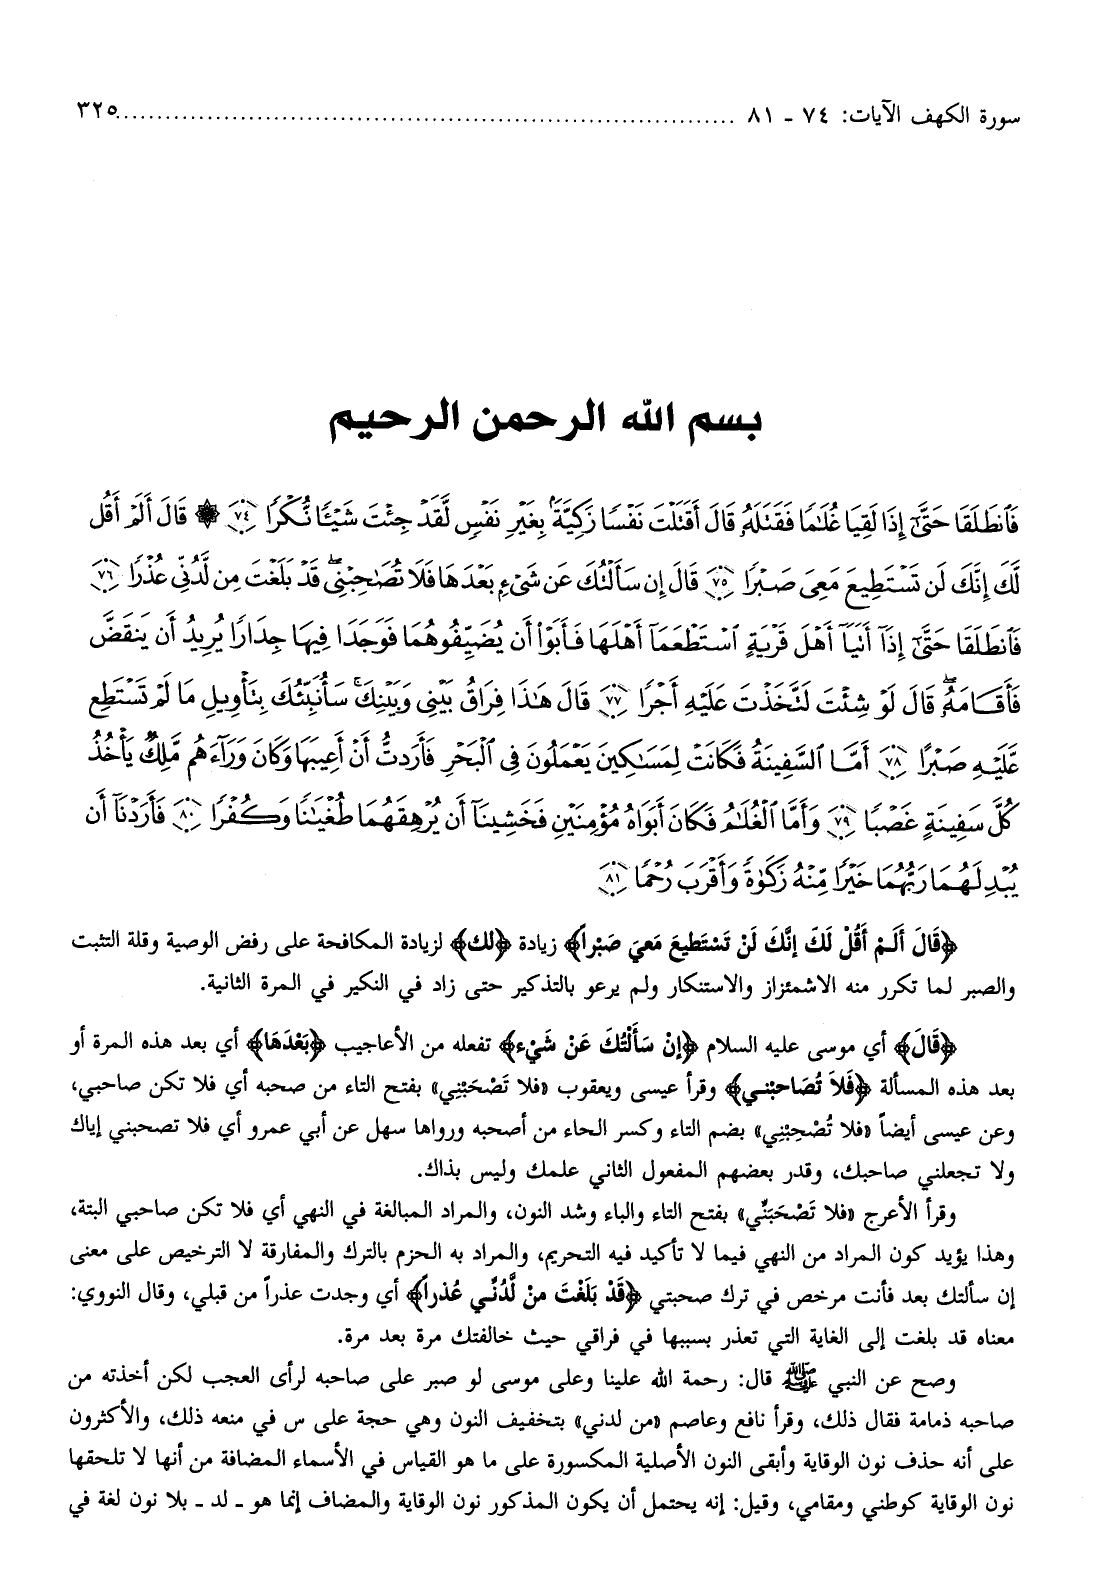 سورة الكهف الآيات: ٧٤ ـ ٨١ ........................................................................................ ٣٢٥
بسم الله الرحمن الرحيم
فَٱنطَلَقَا حَتَّىٰٓ إِذَا لَقِيَا غُلَٰمًا فَقَتَلَهُۥ قَالَ أَقَتَلْتَ نَفْسًا زَكِيَّةًۢ بِغَيْرِ نَفْسٍ لَّقَدْ جِئْتَ شَيْـًٔا نُّكْرًا ﴿٧٤﴾ ۞ قَالَ أَلَمْ أَقُل
لَّكَ إِنَّكَ لَن تَسْتَطِيعَ مَعِىَ صَبْرًا ﴿٧٥﴾ قَالَ إِن سَأَلْتُكَ عَن شَىْءٍۭ بَعْدَهَا فَلَا تُصَٰحِبْنِىۖ قَدْ بَلَغْتَ مِن لَّدُنِّى عُذْرًا ﴿٧٦﴾
فَٱنطَلَقَا حَتَّىٰٓ إِذَآ أَتَيَآ أَهْلَ قَرْيَةٍ ٱسْتَطْعَمَآ أَهْلَهَا فَأَبَوْا۟ أَن يُضَيِّفُوهُمَا فَوَجَدَا فِيهَا جِدَارًا يُرِيدُ أَن يَنقَضَّ
فَأَقَامَهُۥۖ قَالَ لَوْ شِئْتَ لَتَّخَذْتَ عَلَيْهِ أَجْرًا ﴿٧٧﴾ قَالَ هَٰذَا فِرَاقُ بَيْنِى وَبَيْنِكَۚ سَأُنَبِّئُكَ بِتَأْوِيلِ مَا لَمْ تَسْتَطِع
عَّلَيْهِ صَبْرًا ﴿٧٨﴾ أَمَّا ٱلسَّفِينَةُ فَكَانَتْ لِمَسَٰكِينَ يَعْمَلُونَ فِى ٱلْبَحْرِ فَأَرَدتُّ أَنْ أَعِيبَهَا وَكَانَ وَرَآءَهُم مَّلِكٌ يَأْخُذُ
كُلَّ سَفِينَةٍ غَصْبًا ﴿٧٩﴾ وَأَمَّا ٱلْغُلَٰمُ فَكَانَ أَبَوَاهُ مُؤْمِنَيْنِ فَخَشِينَآ أَن يُرْهِقَهُمَا طُغْيَٰنًا وَكُفْرًا ﴿٨٠﴾ فَأَرَدْنَآ أَن
يُبْدِلَهُمَا رَبُّهُمَا خَيْرًا مِّنْهُ زَكَوٰةً وَأَقْرَبَ رُحْمًا ﴿٨١﴾
﴿قَالَ أَلَمْ أَقُلْ لَكَ إِنَّكَ لَنْ تَسْتَطيعَ مَعيَ صَبْراً﴾ زيادة ﴿لك﴾ لزيادة المكافحة على رفض الوصية وقلة التثبت
والصبر لما تكرر منه الاشمئزاز والاستنكار ولم يرعو بالتذكير حتى زاد في النكير في المرة الثانية.
﴿قَالَ﴾ أي موسى عليه السلام ﴿إِنْ سَأَلْتُكَ عَنْ شَيْء﴾ تفعله من الأعاجيب ﴿بَعْدَهَا﴾ أي بعد هذه المرة أو
بعد هذه المسألة ﴿فَلاَ تُصَاحبْني﴾ وقرأ عيسى ويعقوب «فلا تَصْحَبْنِي» بفتح التاء من صحبه أي فلا تكن صاحبي،
وعن عيسى أيضاً «فلا تُصْحِبْنِي» بضم التاء وكسر الحاء من أصحبه ورواها سهل عن أبي عمرو أي فلا تصحبني إياك
ولا تجعلني صاحبك، وقدر بعضهم المفعول الثاني علمك وليس بذاك.
وقرأ الأعرج «فلا تَصْحَبَنِّي» بفتح التاء والباء وشد النون، والمراد المبالغة في النهي أي فلا تكن صاحبي البتة،
وهذا يؤيد كون المراد من النهي فيما لا تأكيد فيه التحريم، والمراد به الحزم بالترك والمفارقة لا الترخيص على معنى
إن سألتك بعد فأنت مرخص في ترك صحبتي ﴿قَدْ بَلَغْتَ منْ لَّدُنِّي عُذراً﴾ أي وجدت عذراً من قبلي، وقال النووي:
معناه قد بلغت إلى الغاية التي تعذر بسببها في فراقي حيث خالفتك مرة بعد مرة.
وصح عن النبي ﷺ قال: رحمة الله علينا وعلى موسى لو صبر على صاحبه لرأى العجب لكن أخذته من
صاحبه ذمامة فقال ذلك، وقرأ نافع وعاصم «من لدني» بتخفيف النون وهي حجة على س في منعه ذلك، والأكثرون
على أنه حذف نون الوقاية وأبقى النون الأصلية المكسورة على ما هو القياس في الأسماء المضافة من أنها لا تلحقها
نون الوقاية كوطني ومقامي، وقيل: إنه يحتمل أن يكون المذكور نون الوقاية والمضاف إنما هو ـ لد ـ بلا نون لغة في